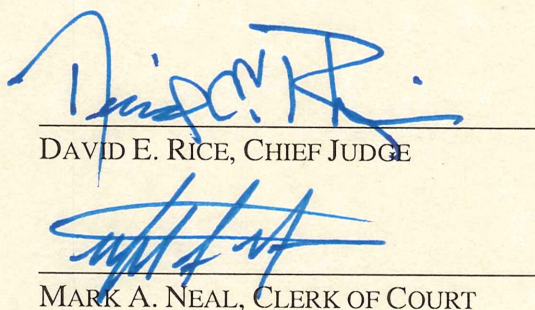 DAVID E. RICE, CHIEF JUDGE
MARK A. NEAL, CLERK OF COURT